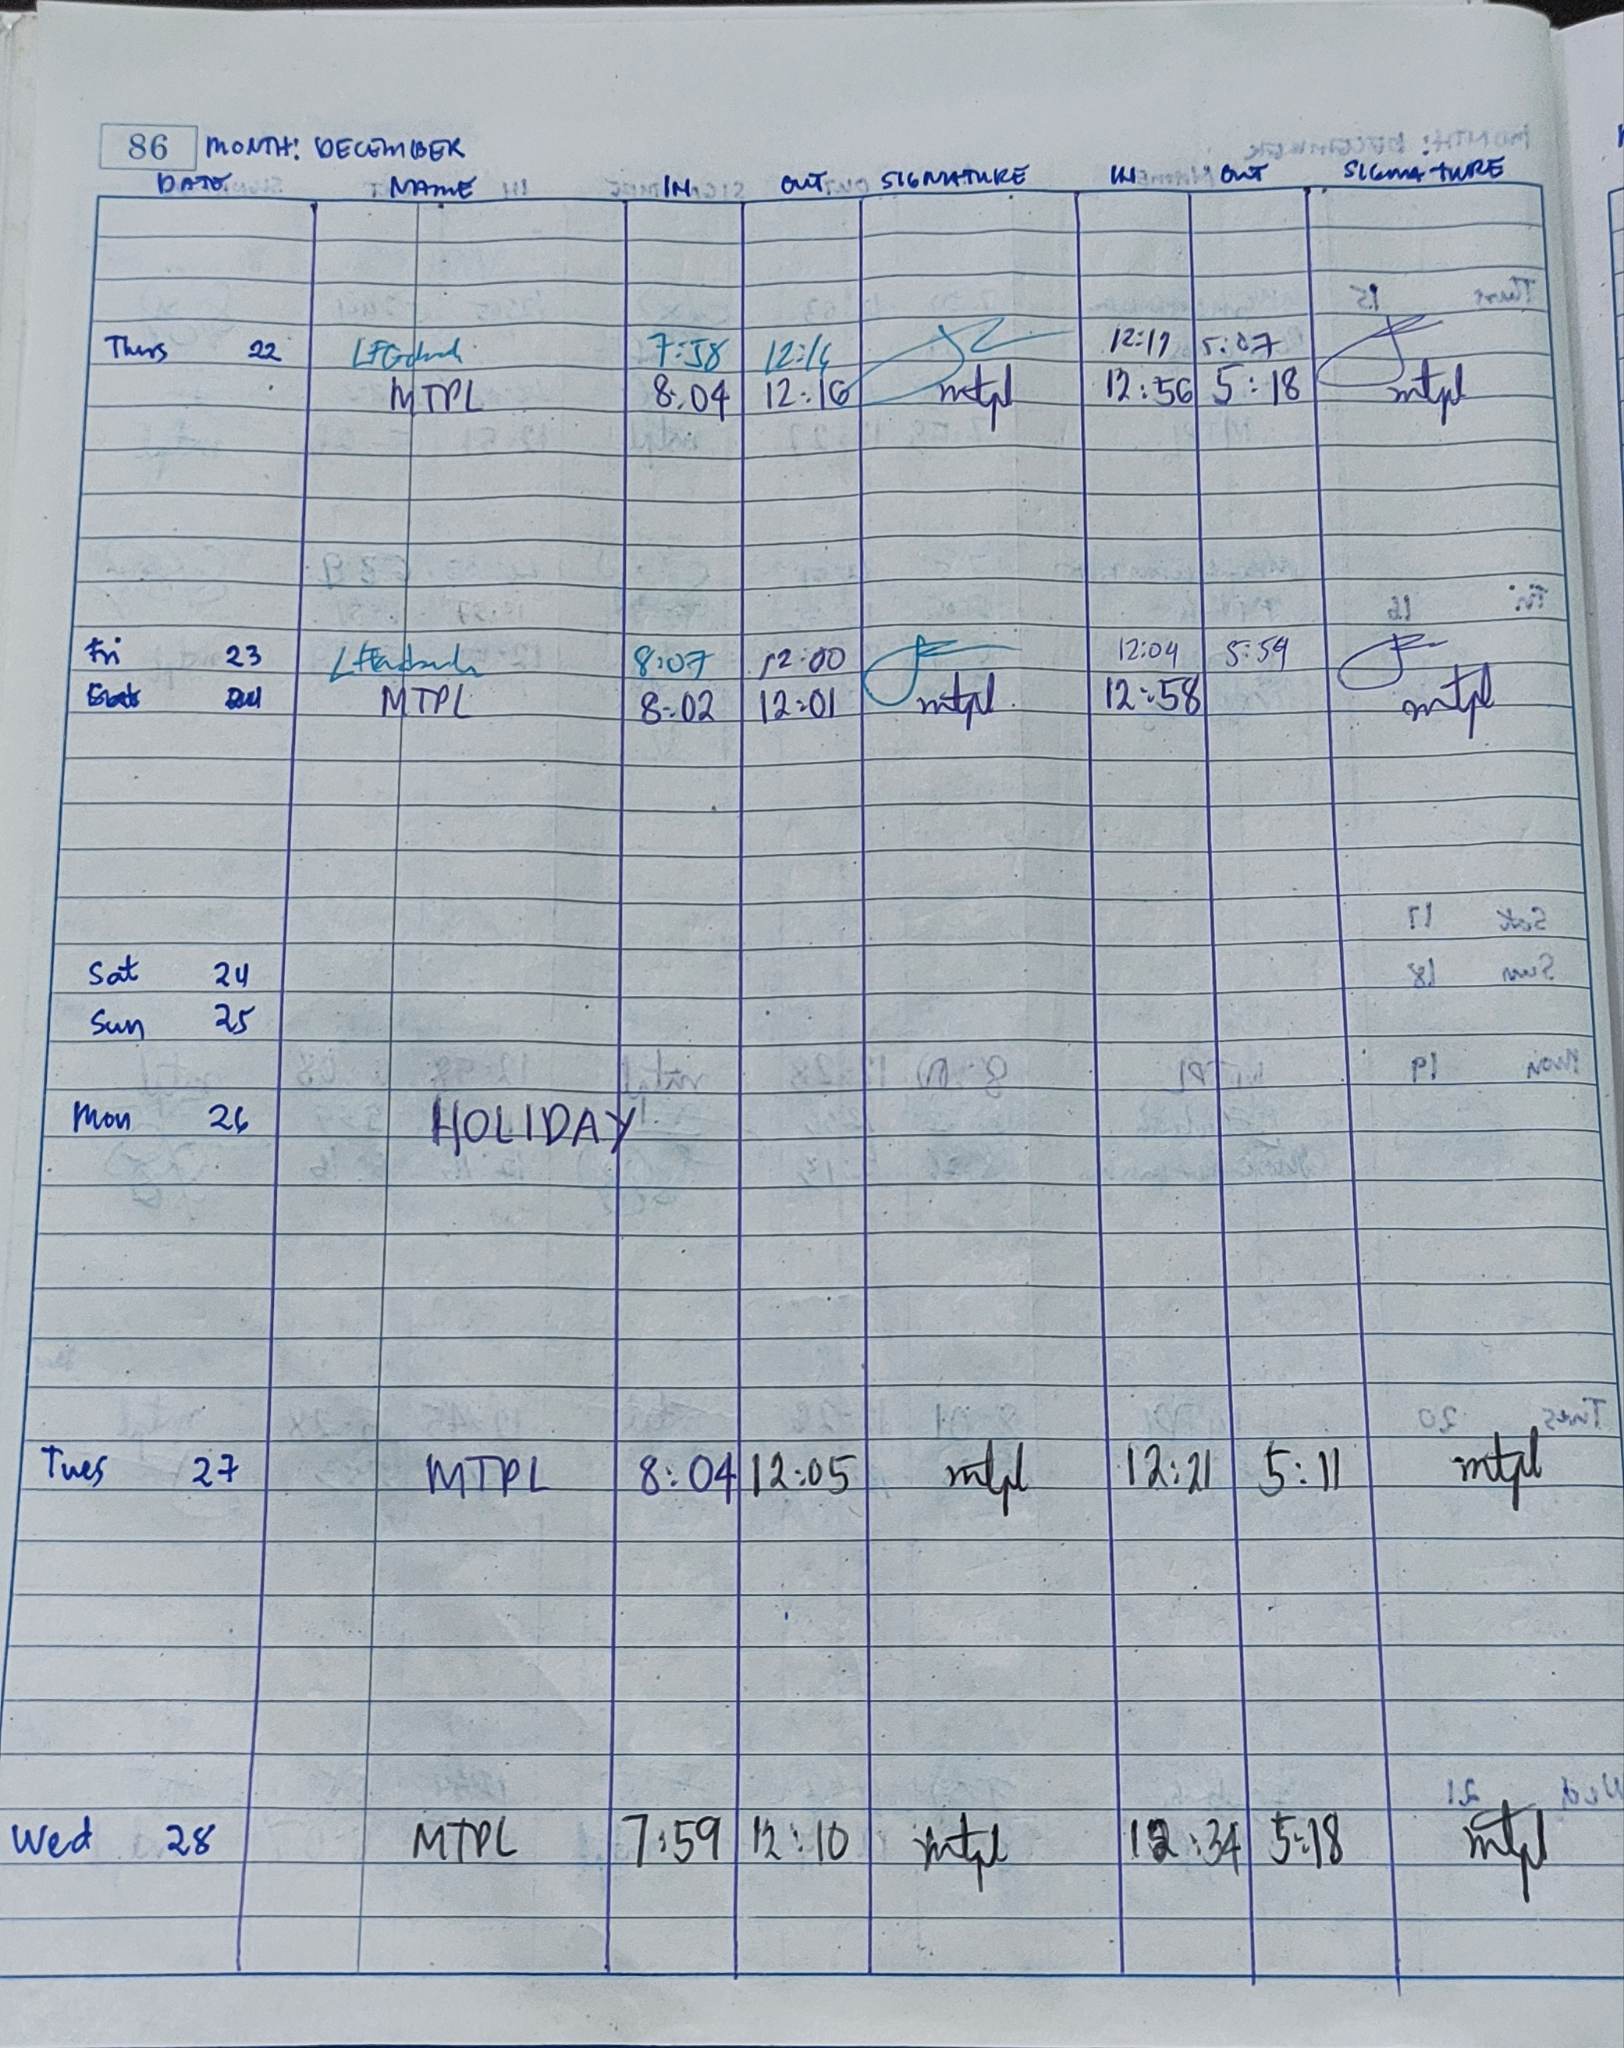 86 MONTH: DECEMBER
DATE NAME IN OUT SIGNATURE IN OUT SIGNATURE
Thurs 22 7:58 12:16 12:19 5:07
MTPL 8:04 12:16 mtpl 12:56 5:18 mtpl
Fri 23 8:07 12:00 12:04 5:59
MTPL 8:02 12:01 mtpl 12:58 mtpl
Sat 24
Sun 25
Mon 26 HOLIDAY
Tues 27 MTPL 8:04 12:05 mtpl 12:21 5:11 mtpl
Wed 28 MTPL 7:59 12:10 mtpl 12:34 5:18 mtpl